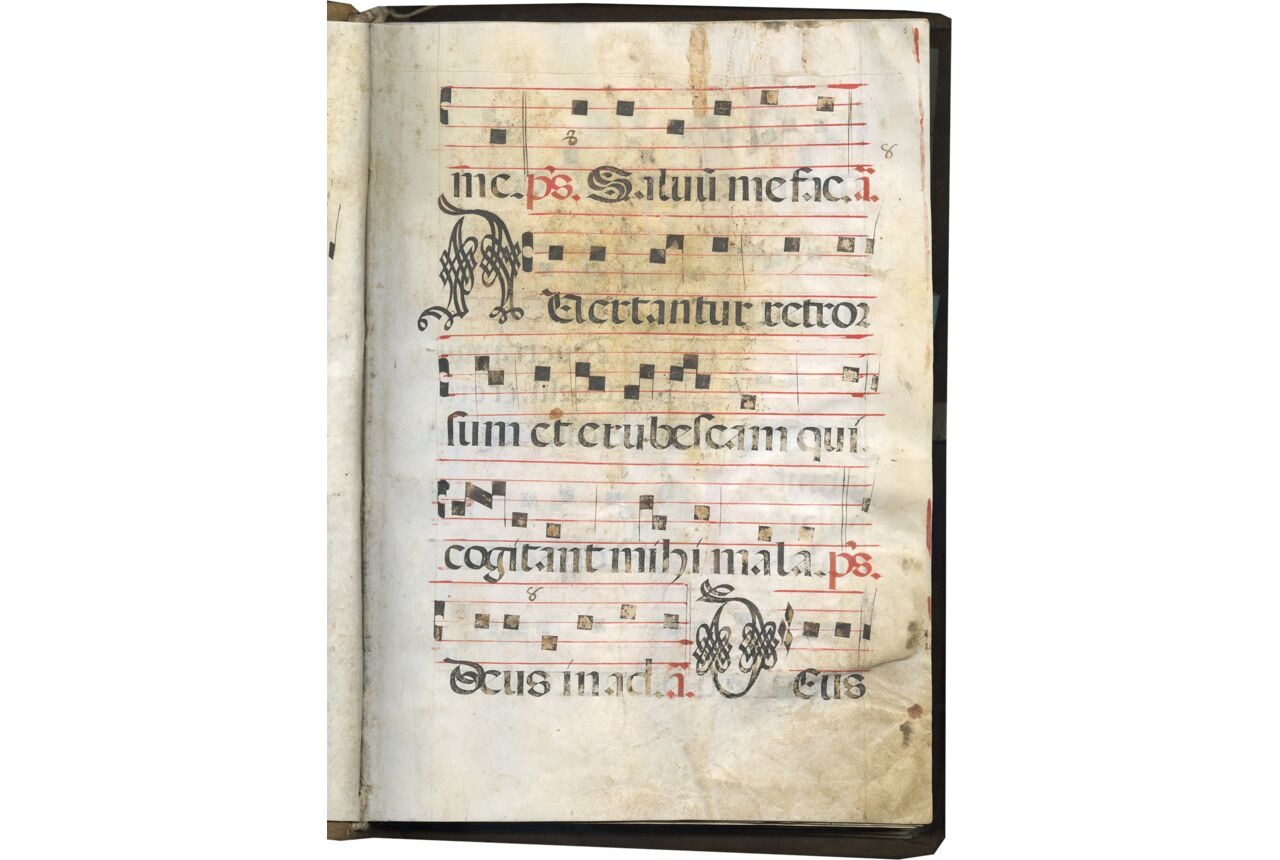 me. ps. Saluū me fac. ā.
AUertantur retror
sum et erubescam qui
cogitant mihi mala. ps.
Deus in ad. ā. DEus